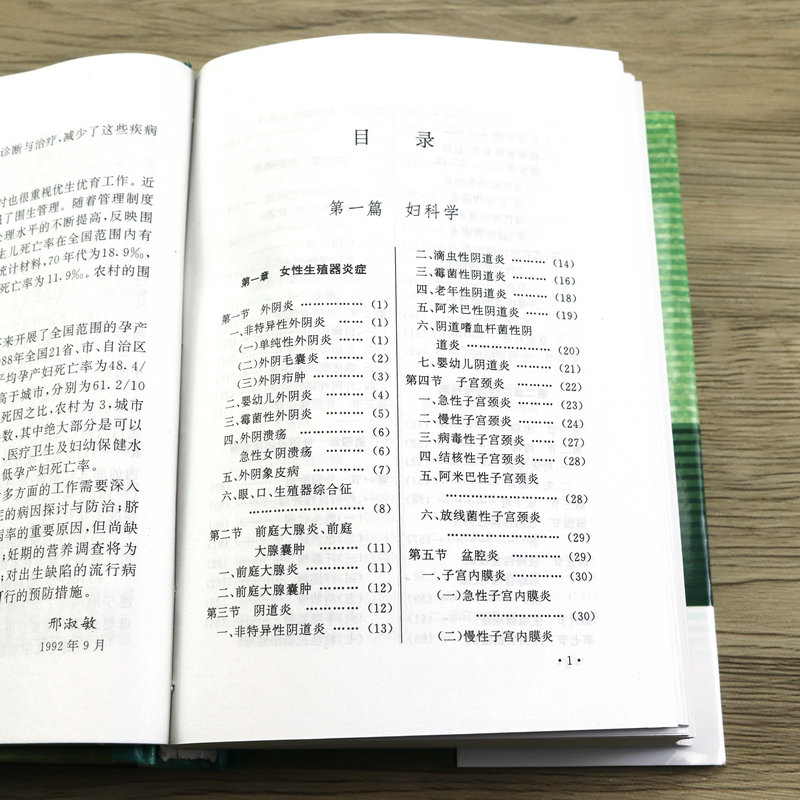 诊断与治疗,减少了这些疾病
时也很重视优生优育工作。近
强了围生管理。随着管理制度
处理水平的不断提高,反映围
生儿死亡率在全国范围内有
统计材料,70年代为18.9‰,
死亡率为11.9‰。农村的围
年来开展了全国范围的孕产
988年全国21省、市、自治区
平均孕产妇死亡率为48.4/
高于城市,分别为61.2/10
死因之比,农村为3,城市
数,其中绝大部分是可以
、医疗卫生及妇幼保健水
低孕产妇死亡率。
多方面的工作需要深入
症的病因探讨与防治;脐
病率的重要原因,但尚缺
;妊期的营养调查将为
;对出生缺陷的流行病
可行的预防措施。
邢淑敏
1992年9月
目 录
第一篇 妇科学
第一章 女性生殖器炎症
第一节 外阴炎 ……………(1)
一、非特异性外阴炎 ……(1)
(一)单纯性外阴炎 ……(1)
(二)外阴毛囊炎 ………(2)
(三)外阴疖肿 …………(3)
二、婴幼儿外阴炎 ………(4)
三、霉菌性外阴炎 ………(5)
四、外阴溃疡 ……………(6)
急性女阴溃疡 …………(6)
五、外阴象皮病 …………(7)
六、眼、口、生殖器综合征
……………………………(8)
第二节 前庭大腺炎、前庭
大腺囊肿 …………(11)
一、前庭大腺炎 …………(11)
二、前庭大腺囊肿 ………(12)
第三节 阴道炎 ……………(12)
一、非特异性阴道炎 ……(13)
二、滴虫性阴道炎 ………(14)
三、霉菌性阴道炎 ………(16)
四、老年性阴道炎 ………(18)
五、阿米巴性阴道炎 ……(19)
六、阴道嗜血杆菌性阴
道炎 …………………(20)
七、婴幼儿阴道炎 ………(21)
第四节 子宫颈炎 …………(22)
一、急性子宫颈炎 ………(23)
二、慢性子宫颈炎 ………(24)
三、病毒性子宫颈炎 ……(27)
四、结核性子宫颈炎 ……(28)
五、阿米巴性子宫颈炎
……………………………(28)
六、放线菌性子宫颈炎
……………………………(29)
第五节 盆腔炎 ……………(29)
一、子宫内膜炎 …………(30)
(一)急性子宫内膜炎
……………………………(30)
(二)慢性子宫内膜炎
·1·